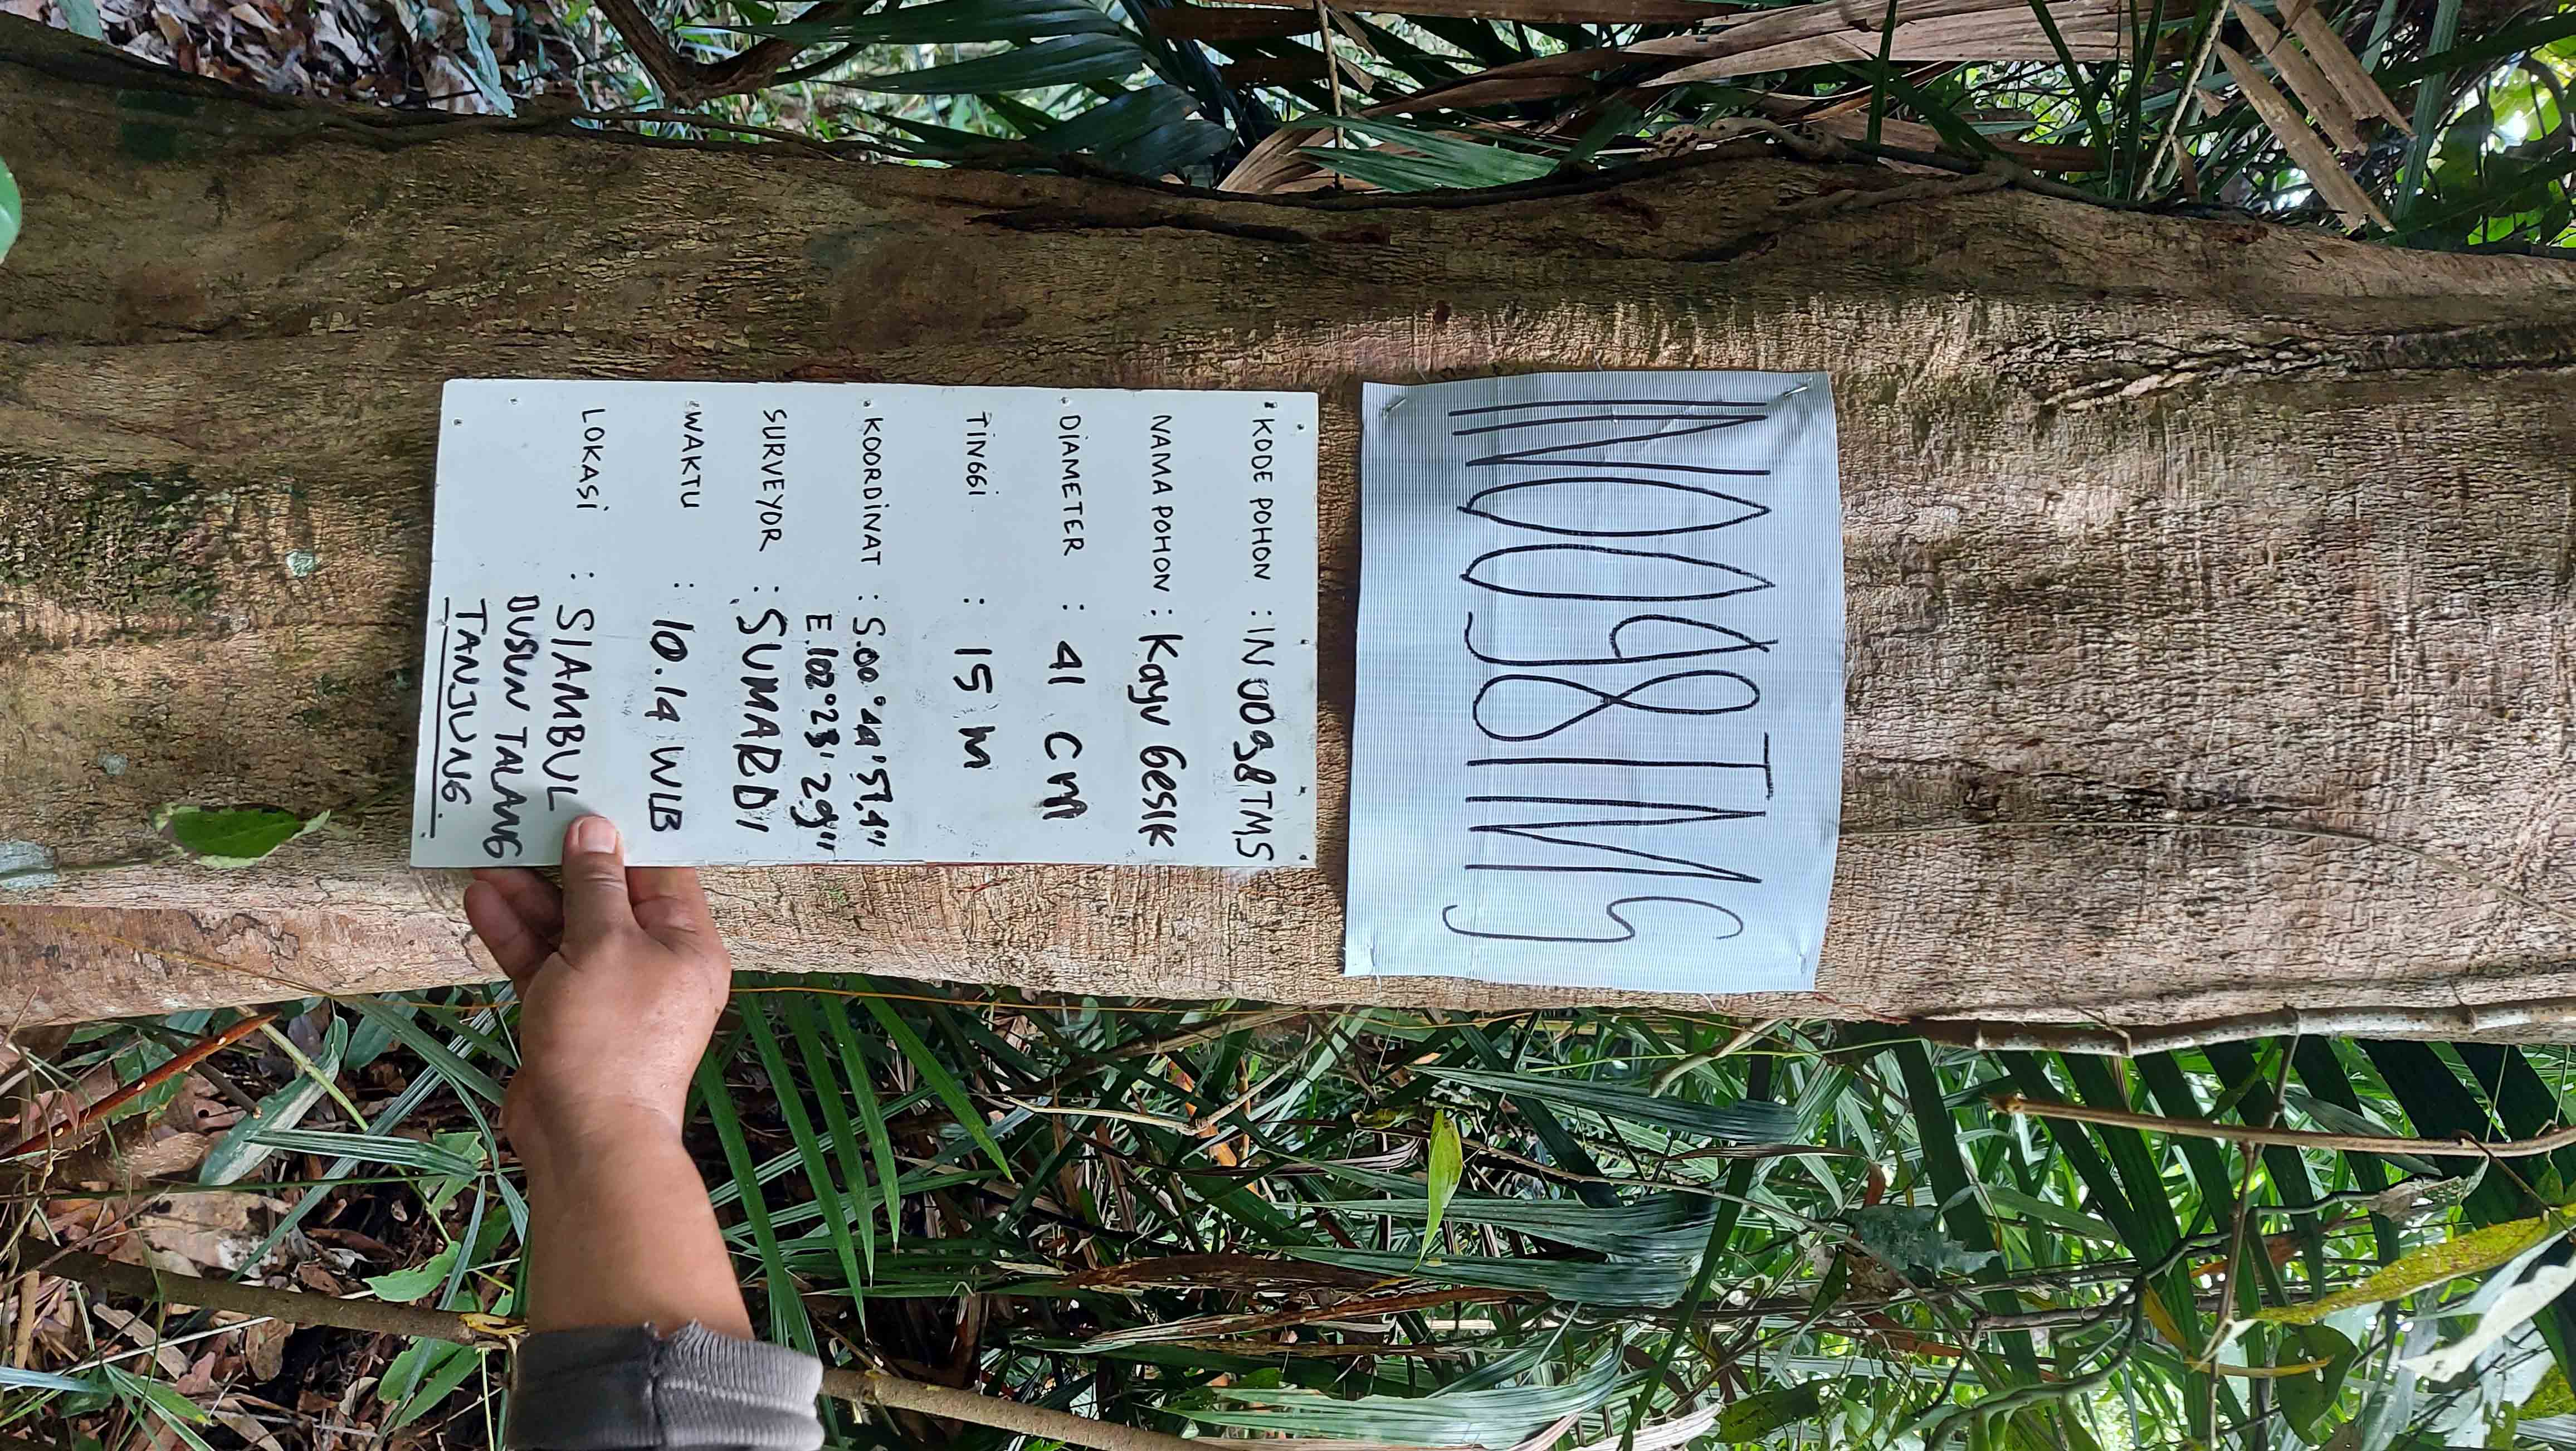 IN0098TMS
KODE POHON : IN 0098TMS
NAMA POHON : Kayu Gesik
DIAMETER : 41 cm
TINGGI : 15 M
KOORDINAT : S.00°44'57,4"
E.102°23'29,9"
SURVEYOR : SUMARDI
WAKTU : 10.14 WIB
LOKASI : SIAMBUL
DUSUN TALANG
TANJUNG.